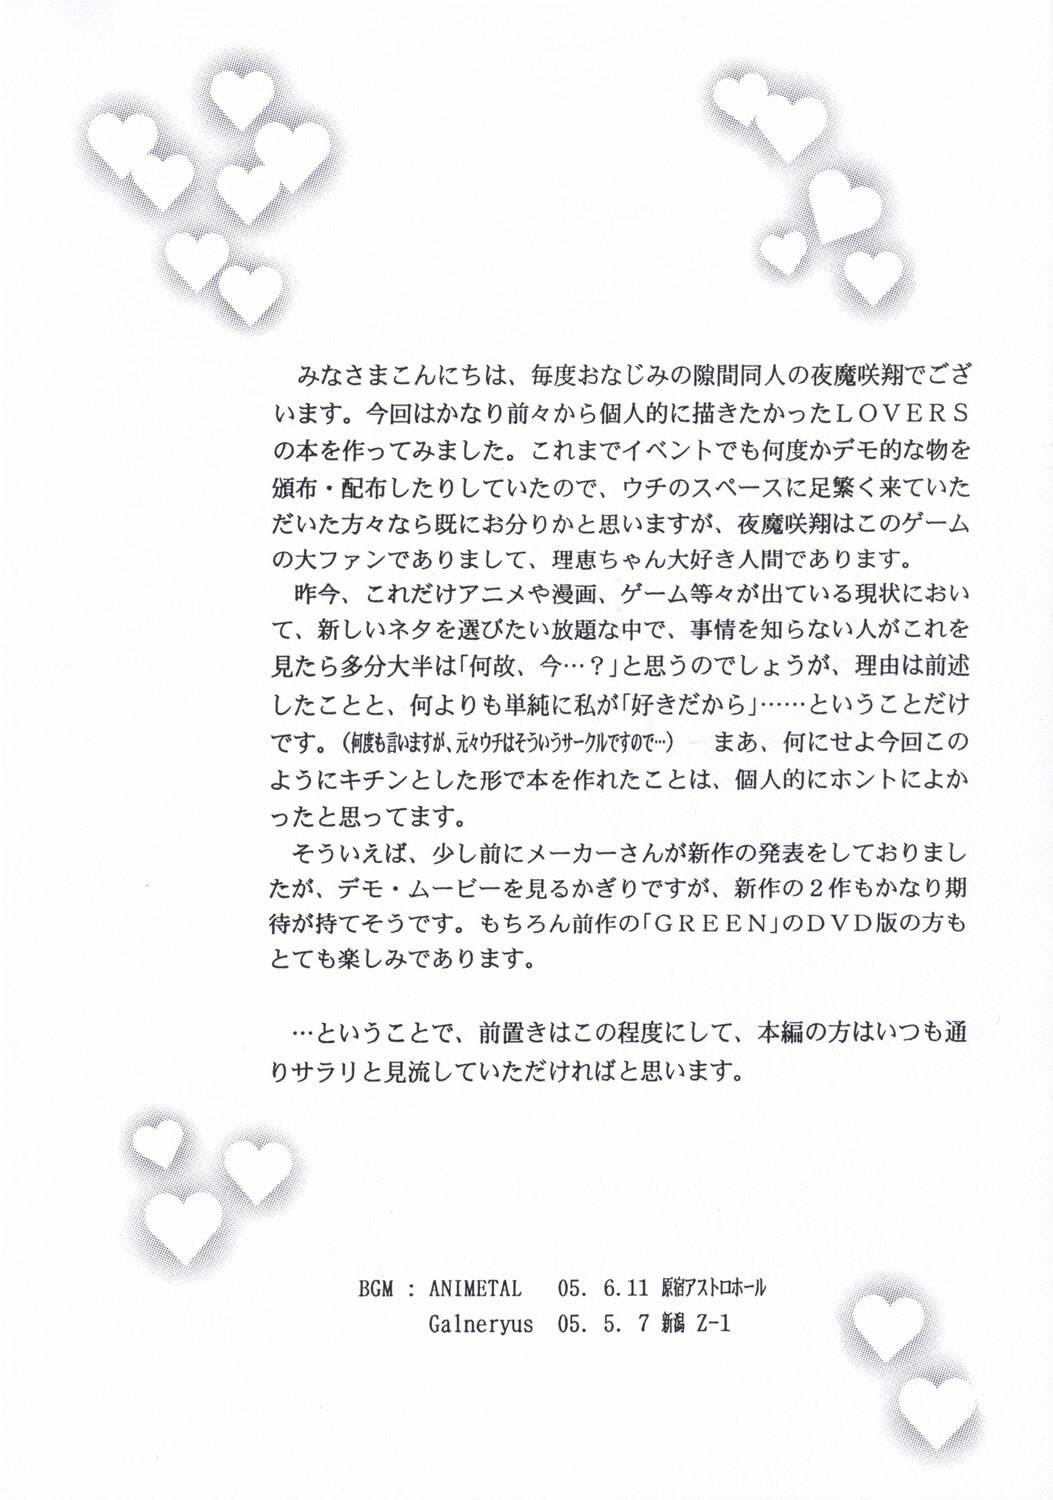 みなさまこんにちは、毎度おなじみの隙間同人の夜魔咲翔でござ
います。今回はかなり前々から個人的に描きたかったＬＯＶＥＲＳ
の本を作ってみました。これまでイベントでも何度かデモ的な物を
頒布・配布したりしていたので、ウチのスペースに足繁く来ていた
だいた方々なら既にお分りかと思いますが、夜魔咲翔はこのゲーム
の大ファンでありまして、理恵ちゃん大好き人間であります。
昨今、これだけアニメや漫画、ゲーム等々が出ている現状におい
て、新しいネタを選びたい放題な中で、事情を知らない人がこれを
見たら多分大半は「何故、今…？」と思うのでしょうが、理由は前述
したことと、何よりも単純に私が「好きだから」……ということだけ
です。（何度も言いますが、元々ウチはそういうサークルですので…）　まあ、何にせよ今回この
ようにキチンとした形で本を作れたことは、個人的にホントによか
ったと思ってます。
そういえば、少し前にメーカーさんが新作の発表をしておりまし
たが、デモ・ムービーを見るかぎりですが、新作の２作もかなり期
待が持てそうです。もちろん前作の「ＧＲＥＥＮ」のＤＶＤ版の方も
とても楽しみであります。
…ということで、前置きはこの程度にして、本編の方はいつも通
りサラリと見流していただければと思います。
BGM : ANIMETAL 05. 6.11 原宿アストロホール
Galneryus 05. 5. 7 新潟 Z-1